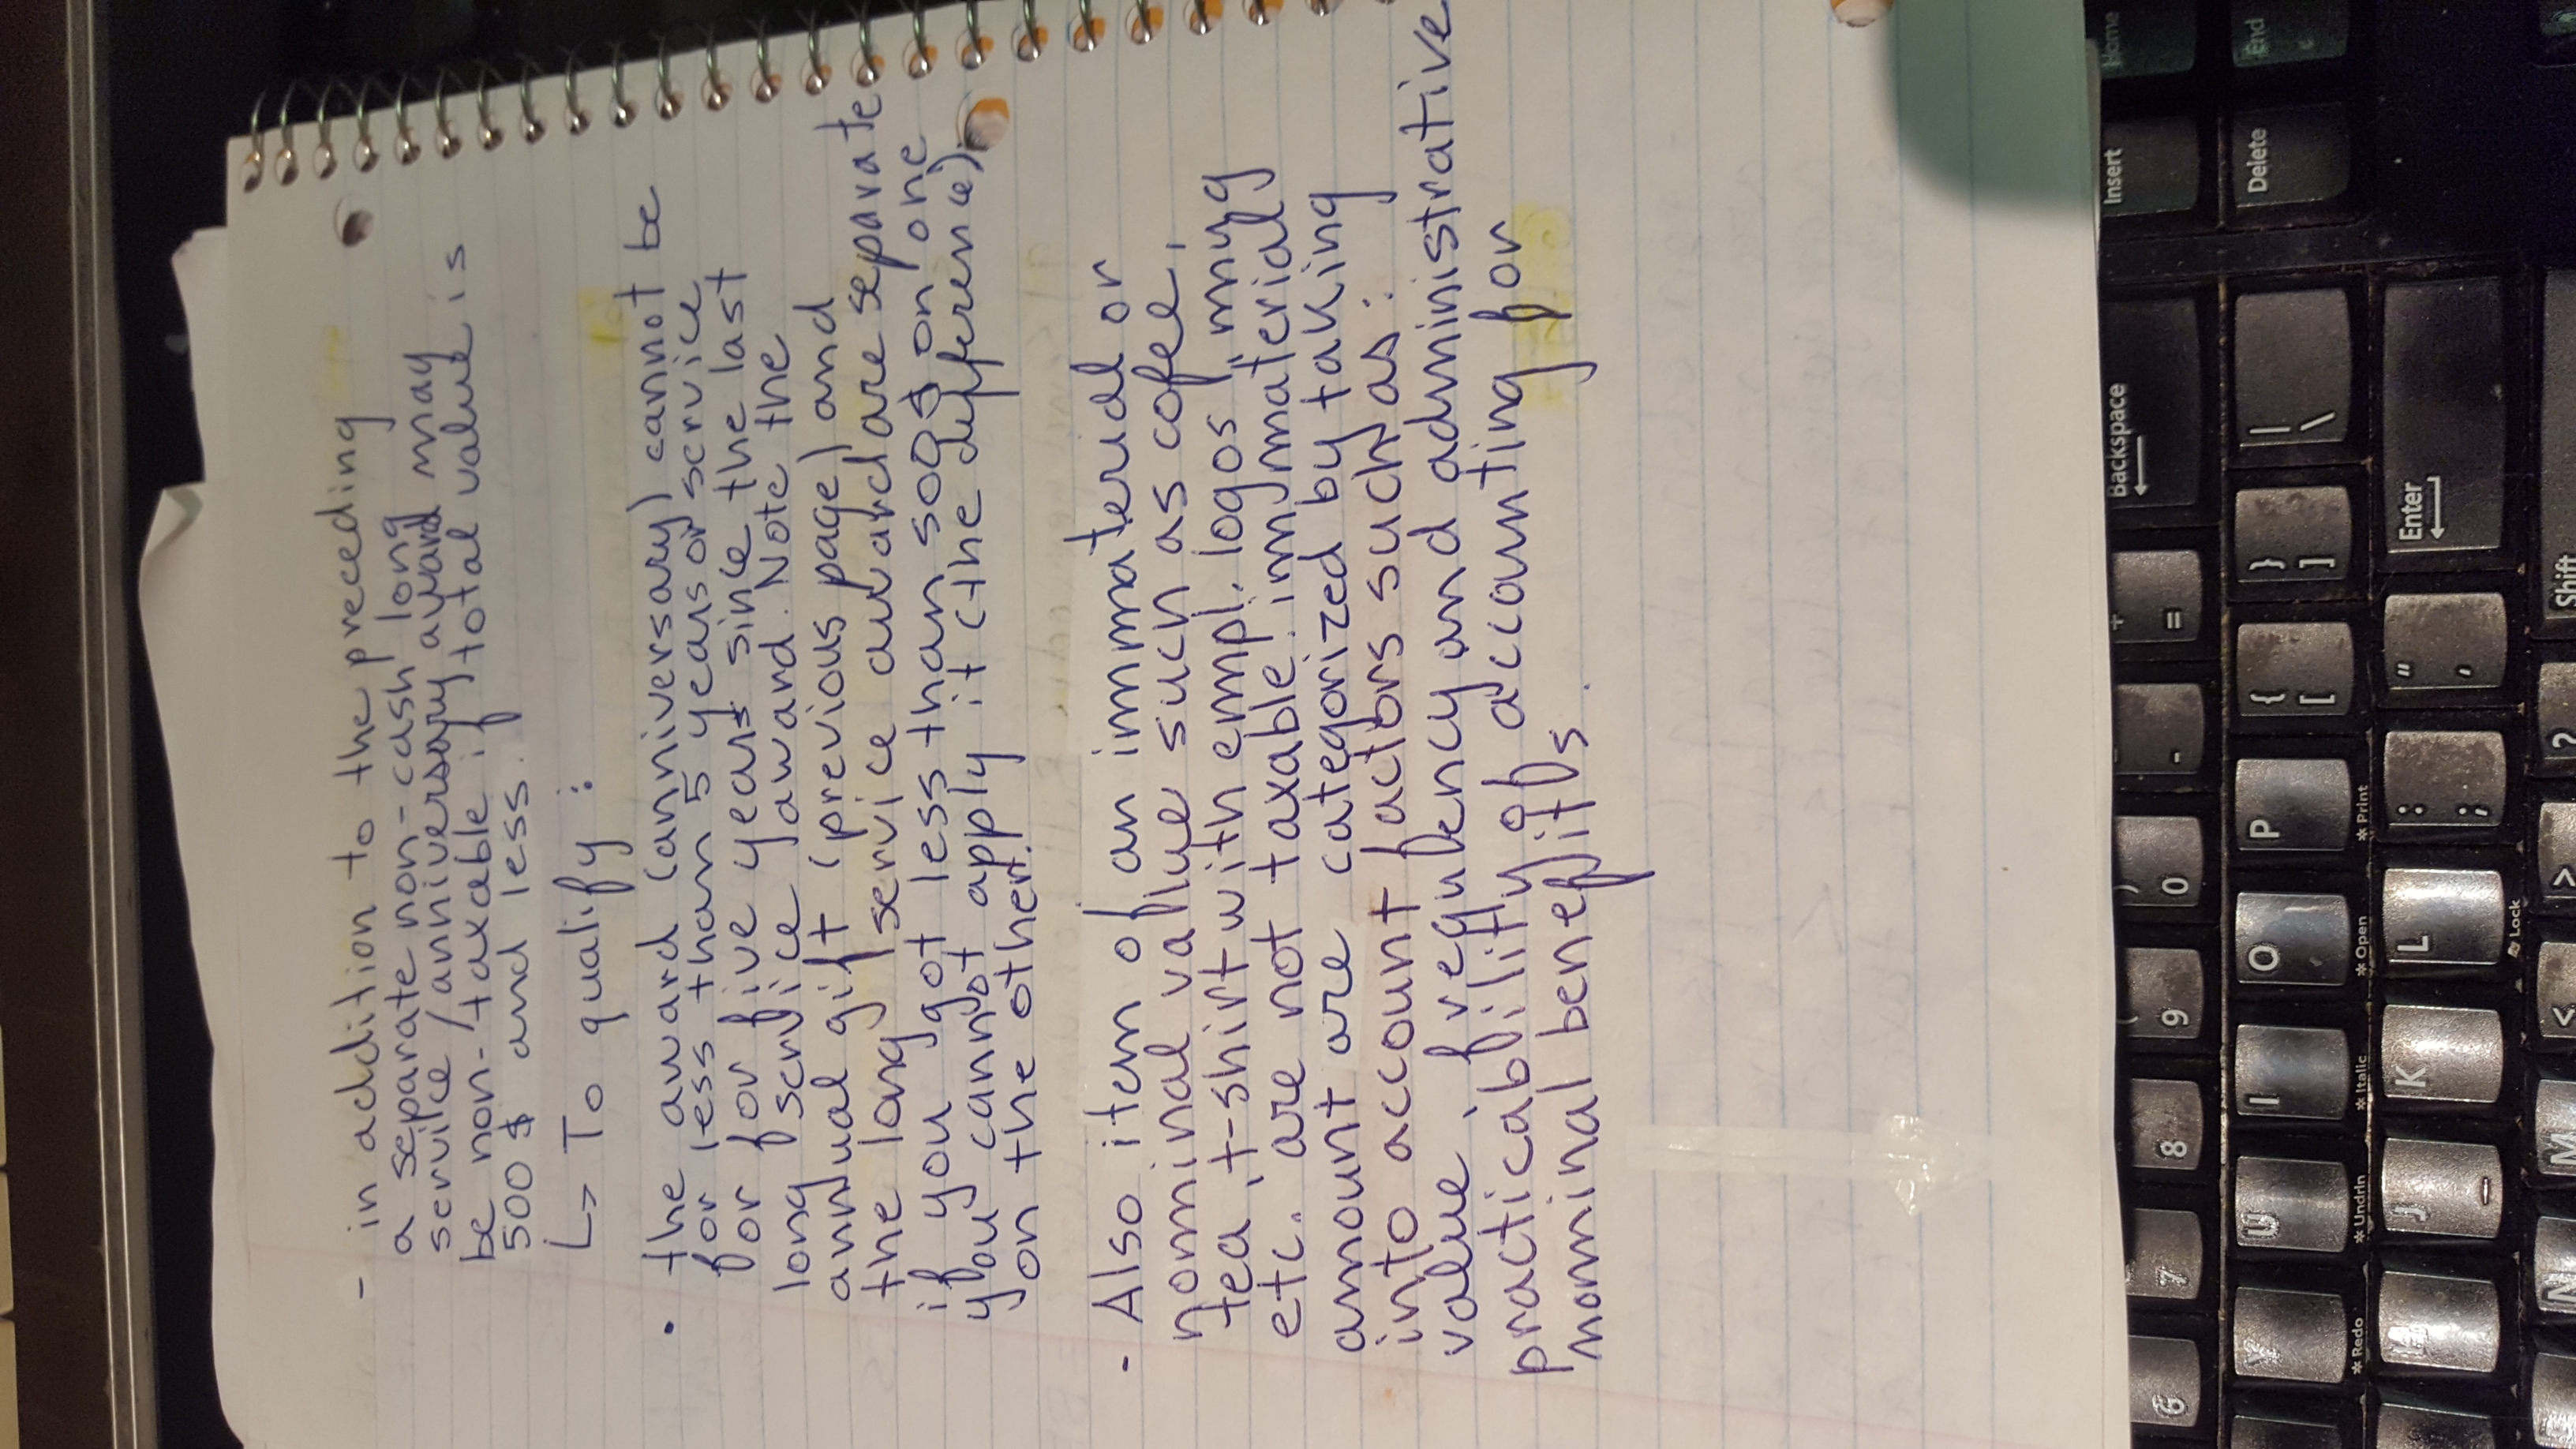 - in addition to the preceding
a separate non-cash long
service / anniversary award may
be non-taxable if total value is
500 $ and less.
L> To qualify :
• the award (anniversary) cannot be
for less than 5 years or service
for for five years since the last
long service award. Note the
annual gift (previous page) and
the long service award are separate
if you got less than 500$ on one
you cannot apply it (the difference)
on the other.
- Also item of an immaterial or
nominal value such as cofee,
tea, t-shirt with empl. logos, mug
etc. are not taxable. immaterial
amount are categorized by taking
into account factors such as :
value, frequency and administrative
practicability of accounting for
nominal benefits.
Home
End
Insert
Delete
Backspace
| \
Enter
+ =
} ]
Shift
- 
{ [
" '
) 0
P
* Print
: ;
?
( 9
O
* Open
L
Lock
>
8
I
* Italic
K
<
7
U
* Undrln
J
M
6
Y
* Redo
H
N